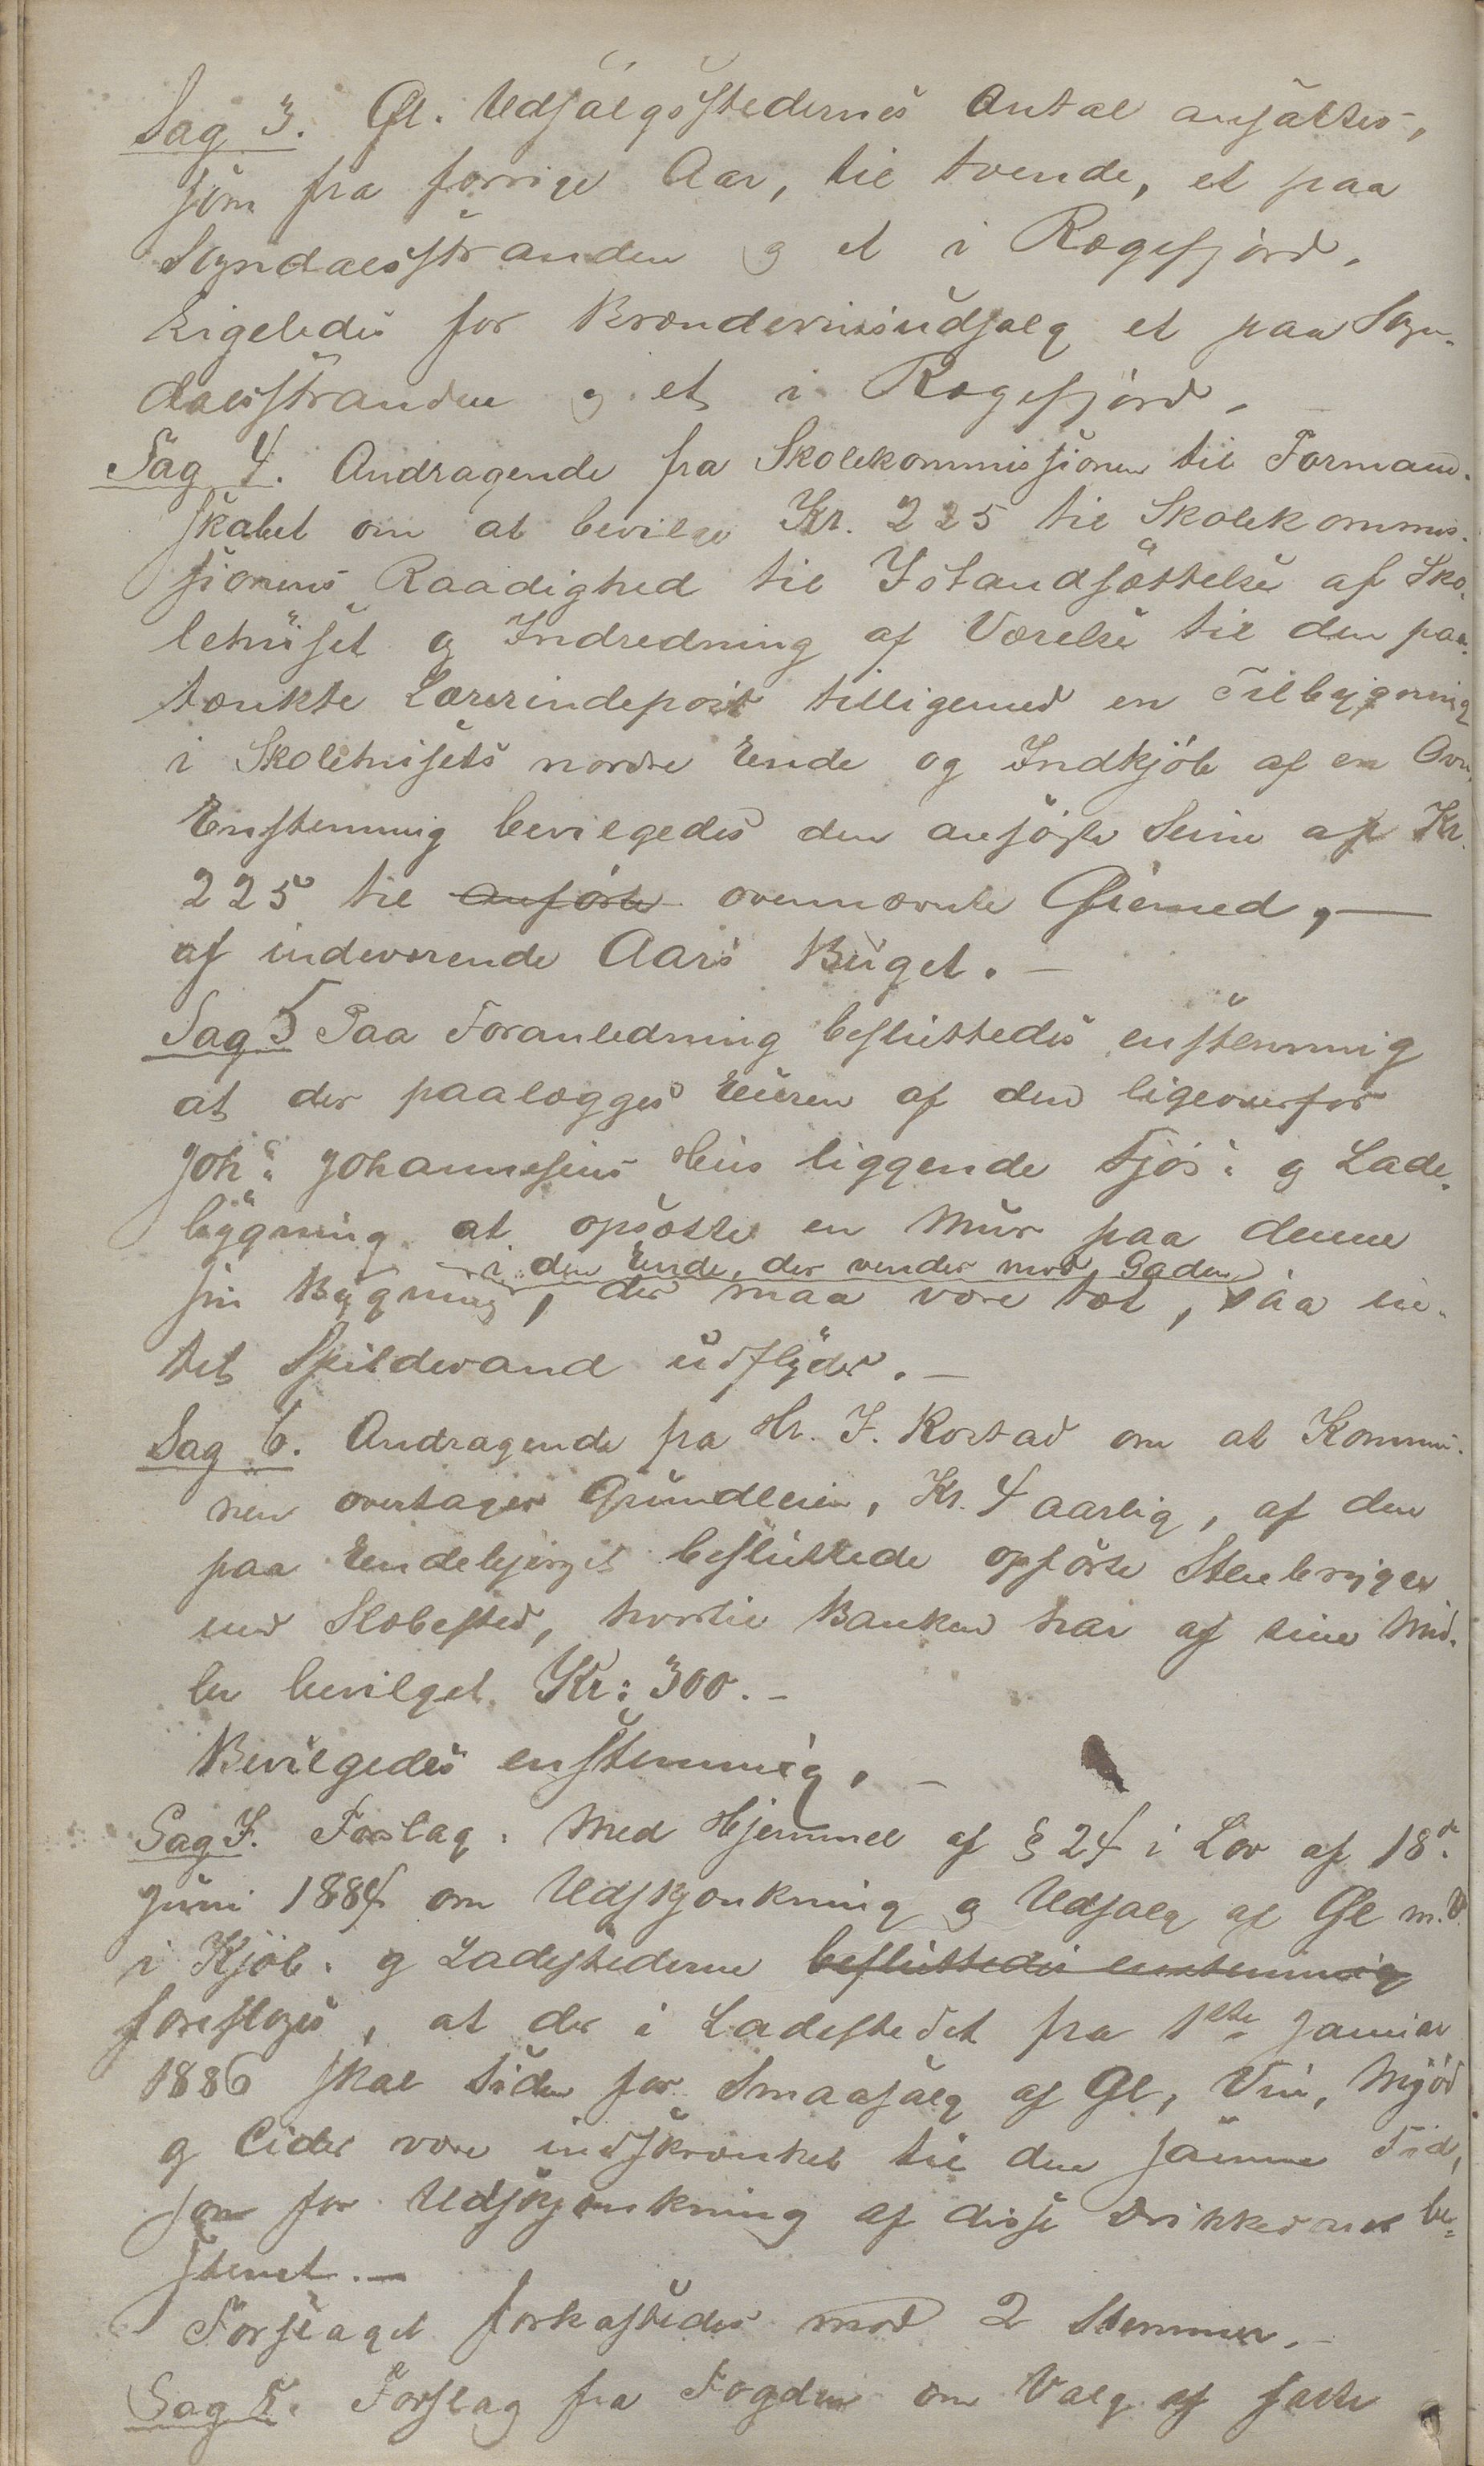 Sag 3. Øl. Udsalgsstedernes Antal ansattes,
som fra forrige Aar, til tvende, et paa
Sogndalsstranden og et i Rægefjord.
Ligeledes for Brændevinsudsalg et paa Sogn-
dalsstranden og et i Rægefjord.
Sag 4. Andragende fra Skolekommissionen til Formand-
skabet om at bevilge Kr. 225 til Skolekommis-
sionens Raadighed til Istandsættelse af Sko-
lehuset og Indredning af Værelse til den paa-
tænkte Lærerindepost tilligemed en Tilbygning
i Skolehusets nordre Ende og Indkjøb af en Ovn,
Enstemmig bevilgedes den ansøgte Sum af Kr.
225 til anførte ovennævnte Øiemed, —
af indeværende Aars Buget. —
Sag 5 Paa Foranledning besluttedes enstemmig
at der paalægges Eieren af den ligeoverfor
Joh: Johannesens Hus liggende Fjøs: og Lade-
bygning at opsætte en Mur paa denne
i den Ende, der vender mod Gaden
sin Bygning, der maa være tæt, saa in-
tet Spildevand udflyder. —
Sag 6. Andragende fra Hr. J. Rostad om at Kommu-
nen overtager Grundleien, Kr. 4 aarlig, af den
paa besluttede opførte Stenbrygge
med Slæbested, hvortil Banken har af sine Mid-
ler bevilget Kr: 300. –
Bevilgedes enstemmig. –
Sag 7. Forslag: Med Hjemmel af § 24 i Lov af 18de
Juni 1884 om Udskjænkning og Udsalg af Øl m.V.
i Kjøb: og Ladestederne besluttedes enstemmig
foresloges, at der i Ladestedet fra 1ste Januar
1886 skal Tiden for Smaasalg af Øl, Vin, Mjød
og Cider være indskrænket til den samme Tid,
som for Udskjænkning af disse Drikkevarer be-
stemt. —
Forslaget forkastedes mod 2 Stemmer. –
Sag 8. Forslag fra Fogden om Valg af faste